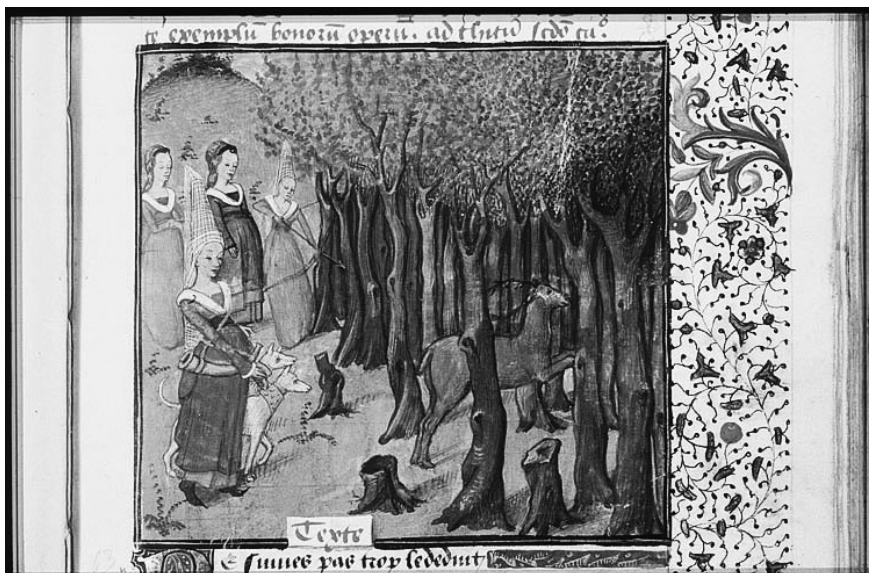 te exemplũ bonorũ operũ. ad thitũ scdo ca°
Texte
E suiues pas trop le deduit